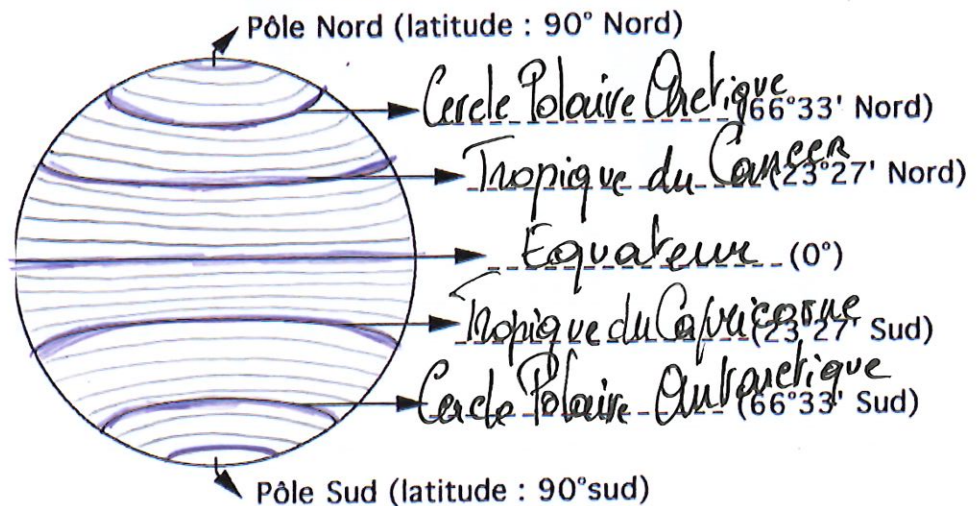 Pôle Nord (latitude : 90° Nord)
Cercle Polaire Arctique (66°33' Nord)
Tropique du Cancer (23°27' Nord)
Equateur (0°)
Tropique du Capricorne (23°27' Sud)
Cercle Polaire Antarctique (66°33' Sud)
Pôle Sud (latitude : 90°sud)